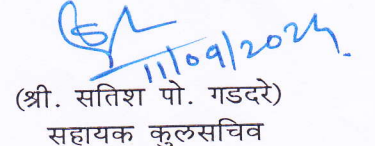 11/09/2024
(श्री. सतिश पो. गडदरे)
सहायक कुलसचिव